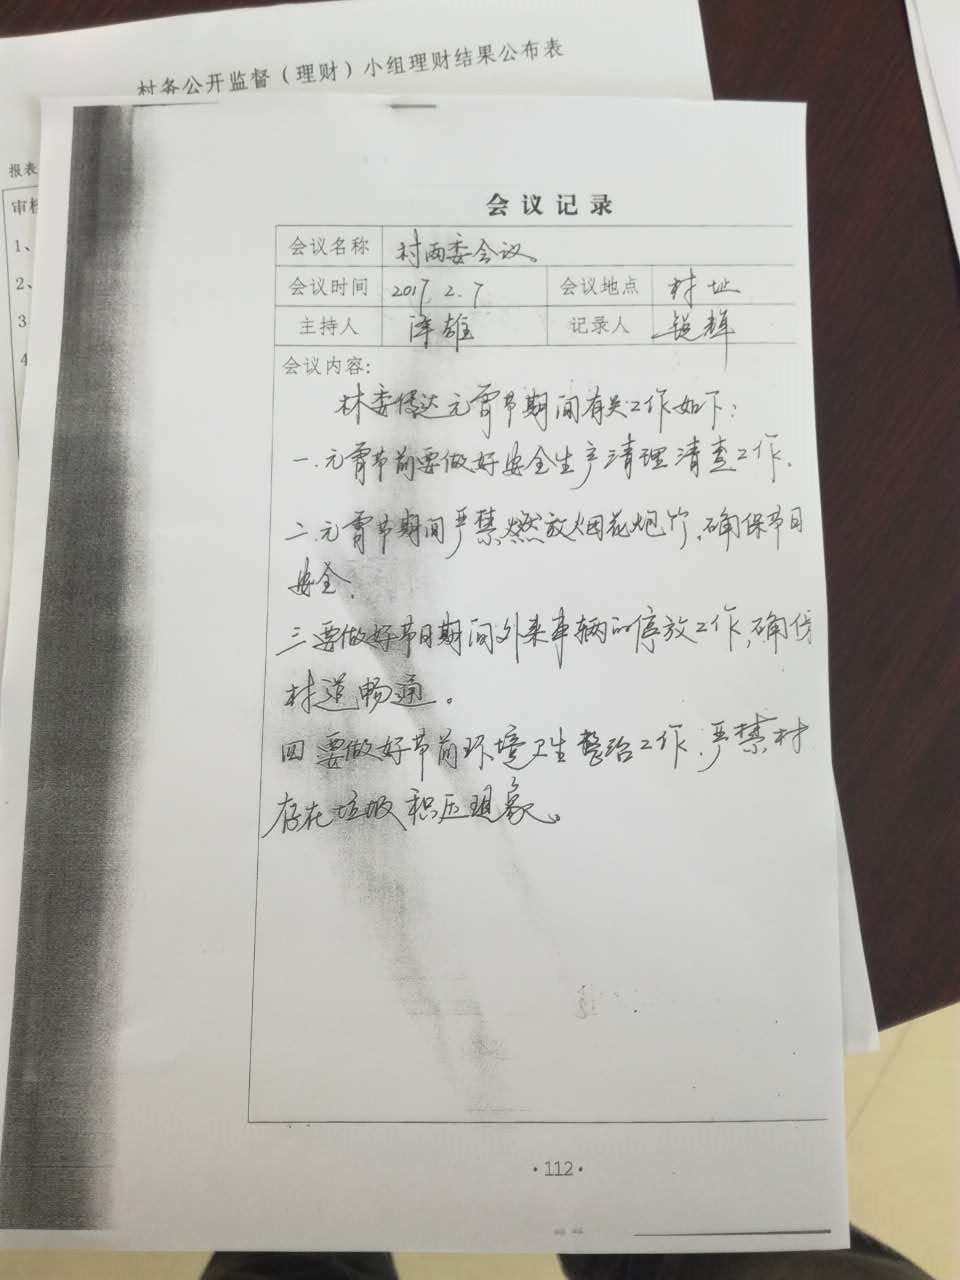 村务公开监督(理财)小组理财结果公布表
报表
审核
1、
2、
3
4
会议记录
会议名称 村两委会议。
会议时间 2017.2.7 会议地点 村址
主持人 泽雄 记录人 锐辉
会议内容:
林委传达元宵节期间有关工作如下:
一.元宵节前要做好安全生产清理清查工作.
二.元宵节期间严禁燃放烟花炮竹,确保节日
安全.
三.要做好节日期间外来车辆的停放工作,确保
村道畅通。
四 要做好节前环境卫生整治工作.严禁村
存在垃圾积压现象。
·112·